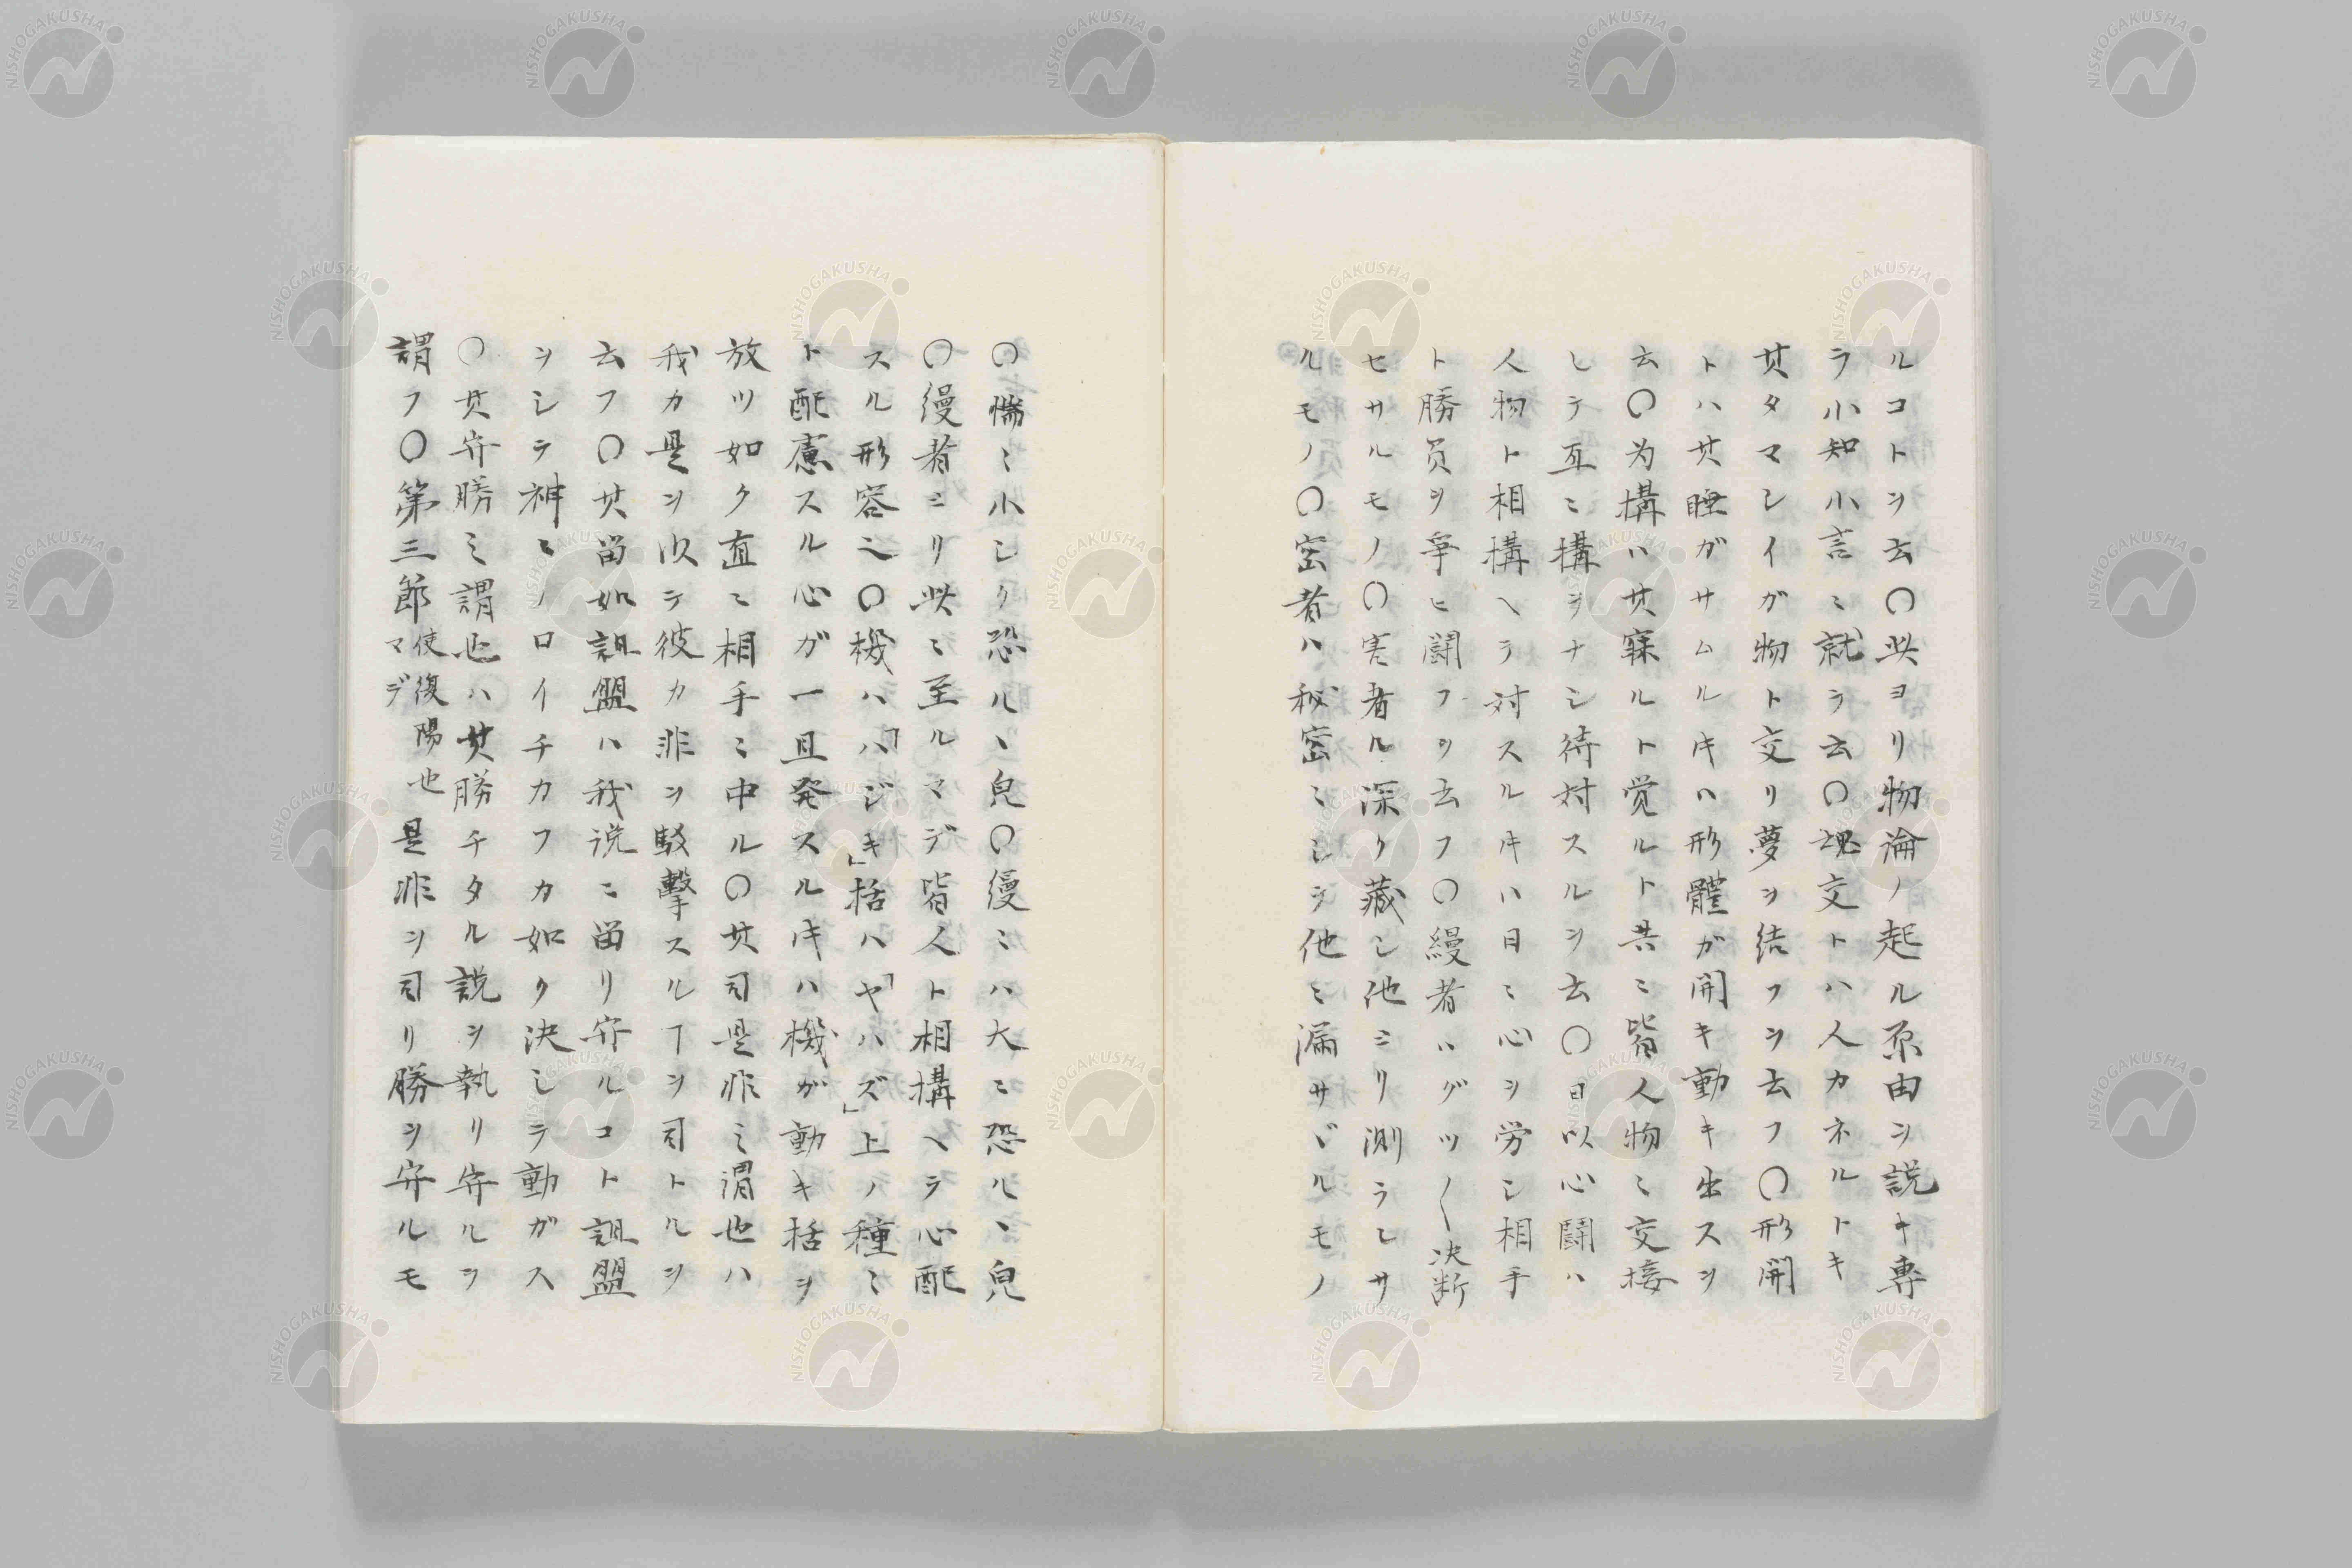 ルコトヲ云〇此ヨリ物論ノ起ル原由ヲ説キ専
ラ小知小言ニ就ラ云〇魂交トハ人カネルトキ
其タマシイガ物ト交リ夢ヲ結フヲ云フ〇形開
トハ其睡ガサムルキハ形體ガ開キ動キ出スヲ
云〇為構ハ其寐ルト覚ルト共ニ皆人物ニ交接
シテ互ニ構ヲナシ待対スルヲ云〇日以心闘ハ
人物ト相構ヘラ対スルキハ日ニ心ヲ労シ相手
ト勝負ヲ爭ヒ闘フヲ云フ〇縵者ハグツ〱决断
セサルモノ〇実者ル深ク藏シ他ミリ測ラレサ
ルモノ〇密者ハ秘密ミシテ他ミ漏サヾルモノ
〇惴ミ小シク恐ル丶皃〇縵ミハ大ニ恐ル丶皃
〇縵者ニリ此ミ至ルマデ皆人ト相構ヘラ心配
スル形容之〇機ハ「ハジキ」栝ハ「ヤハズ」上ノ種ミ
ト配慮スル心ガ一旦発スルキハ機ガ動キ栝ヲ
放ツ如ク直ニ相手ミ中ル〇其司是非ミ謂也ハ
我カ是ヲ以テ彼カ非ヲ駁擊スルヿヲ司トルヲ
云フ〇其留如詛盟ハ我説ニ留リ守ルコト詛盟
ヲシラ神ミノロイチカフカ如ク決シラ動ガス
〇其守勝ミ謂也ハ其勝チタル説ヲ執リ守ルヲ
謂フ〇第三節使復陽也マデ是非ヲ司リ勝ヲ守ルモ
NISHOGAKUSHA